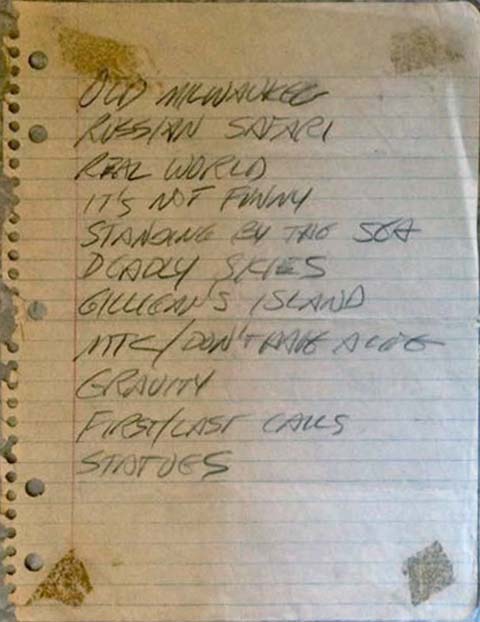 OLD MILWAUKEE
RUSSIAN SAFARI
REAL WORLD
IT'S NOT FUNNY
STANDING BY THE SEA
DEADLY SKIES
GILLIGAN'S ISLAND
MTC/DON'T HAVE A LIFE
GRAVITY
FIRST/LAST CALLS
STATUES